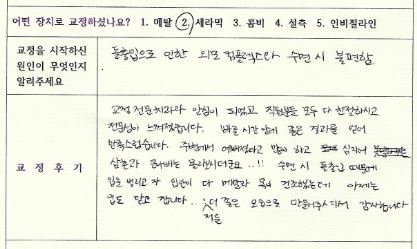 어떤 장치로 교정하셨나요? 1. 메탈 2. 세라믹 3. 콤비 4. 설측 5. 인비절라인
교정을 시작하신
원인이 무엇인지
알려주세요
돌출입으로 인한 외모 컴플렉스와 수면 시 불편함.
교 정 후 기
교정 전문치과라 안심이 되었고 직원분들 모두 다 친절하시고
전문성이 느껴졌습니다. 짧은 시간 안에 좋은 결과를 얻어
만족스럽습니다. 주변에서 예뻐졌다고 많이 하고 심지어
삼촌과 못 알아보시더군요..!! 수면 시 돌출입 때문에
입을 벌리고 자 입안이 다 메말라 목이 건조했는데 이제는
입도 닫고 잡니다... 더 좋은 모습으로 만들어주셔서 감사합니다
저를